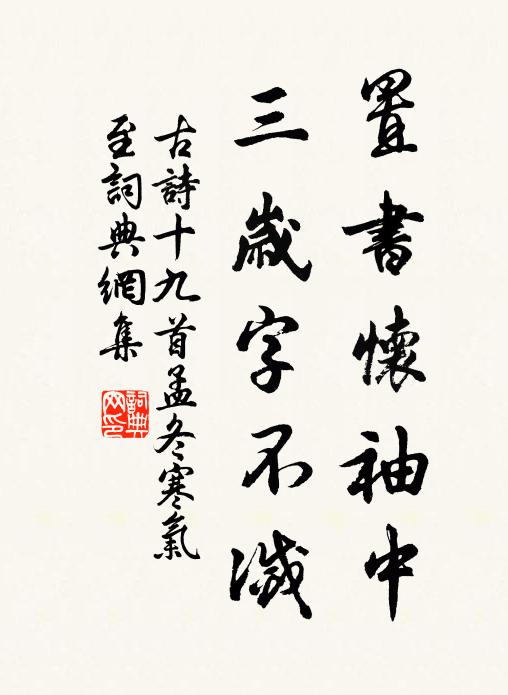 置書懷袖中
三歲字不滅
古詩十九首孟冬寒氣
至詞典網集
詞典
网印